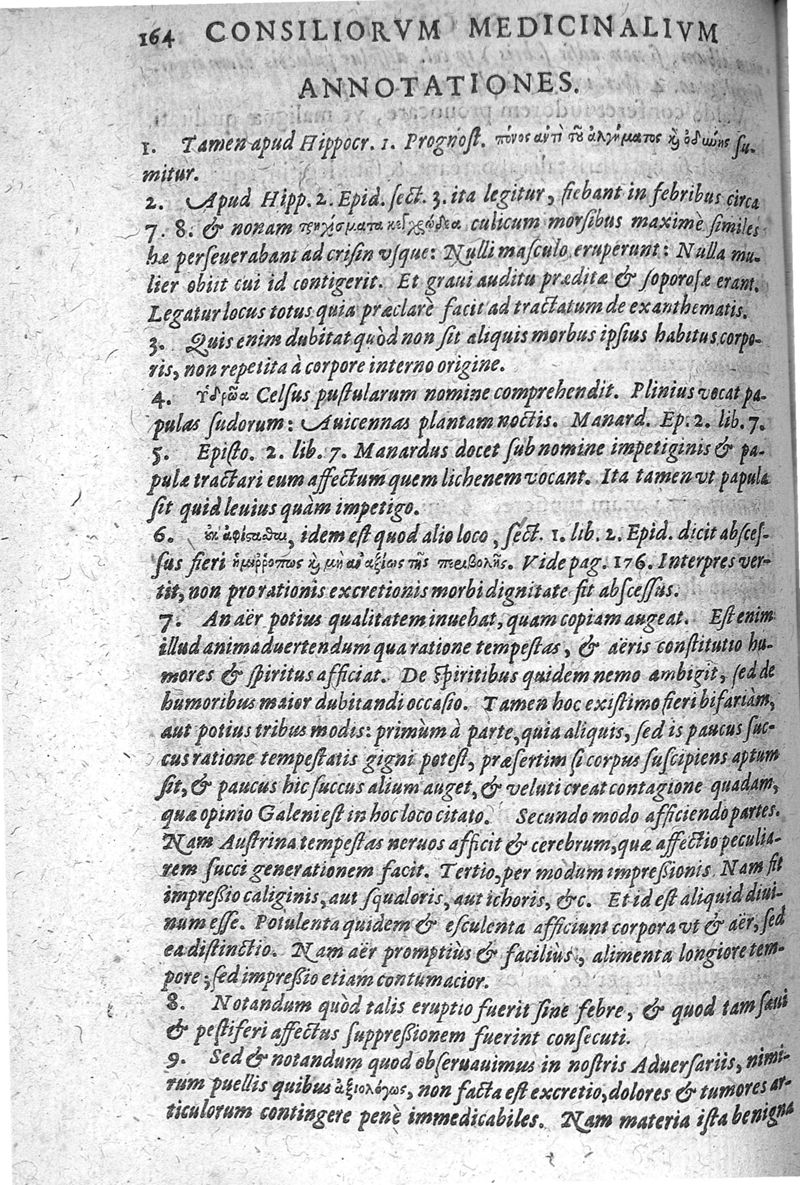 164 CONSILIORVM MEDICINALIVM
ANNOTATIONES.
1. Tamen apud Hippocr. 1. Prognoſt. πόνος ἀντὶ τοῦ ἀλγήματος κὶ ὀδύνης ſu-
mitur.
2. Apud Hipp. 2. Epid. ſect. 3. ita legitur, fiebant in febribus circa
7. 8. & nonam culicum morſibus maximè ſimiles
hæ perſeuerabant ad criſin vſque: Nulli maſculo eruperunt: Nulla mu-
lier obiit cui id contigerit. Et graui auditu præditæ & ſoporoſæ erant.
Legatur locus totus quia præclarè facit ad tractatum de exanthematis.
3. Quis enim dubitat quòd non ſit aliquis morbus ipſius habitus corpo-
ris, non repetita à corpore interno origine.
4. ἱδρῶα Celſus puſtularum nomine comprehendit. Plinius vocat pa-
pulas ſudorum: Auicennas plantam noctis. Manard. Ep. 2. lib. 7.
5. Epiſto. 2. lib. 7. Manardus docet ſub nomine impetiginis & pa-
pulæ tractari eum affectum quem lichenem vocant. Ita tamen vt papula
ſit quid leuius quàm impetigo.
6. idem eſt quod alio loco, ſect. 1. lib. 2. Epid. dicit abſceſ-
ſus fieri τῆς περιβολῆς. Vide pag. 176. Interpres ver-
tit, non pro rationis excretionis morbi dignitate fit abſceſſus.
7. An aër potius qualitatem inuehat, quam copiam augeat. Eſt enim
illud animaduertendum qua ratione tempeſtas, & aëris conſtitutio hu-
mores & ſpiritus afficiat. De ſpiritibus quidem nemo ambigit, ſed de
humoribus maior dubitandi occaſio. Tamen hoc exiſtimo fieri bifariàm,
aut potius tribus modis: primùm à parte, quia aliquis, ſed is paucus ſuc-
cus ratione tempeſtatis gigni poteſt, præſertim ſi corpus ſuſcipiens aptum
ſit, & paucus hic ſuccus alium auget, & veluti creat contagione quadam,
quæ opinio Galeni eſt in hoc loco citato. Secundo modo afficiendo partes.
Nam Auſtrina tempeſtas neruos afficit & cerebrum, quæ affectio peculia-
rem ſucci generationem facit. Tertio, per modum impreßionis Nam fit
impreßio caliginis, aut ſqualoris, aut ichoris, &c. Et id eſt aliquid diui-
num eſſe. Potulenta quidem & eſculenta afficiunt corpora vt & aër, ſed
ea diſtinctio. Nam aër promptiùs & facilius, alimenta longiore tem-
pore; ſed impreßio etiam contumacior.
8. Notandum quòd talis eruptio fuerit ſine febre, & quod tam ſæui
& peſtiferi affectus ſuppreßionem fuerint conſecuti.
9. Sed & notandum quod obſeruauimus in noſtris Aduerſariis, nimi-
rum puellis quibus ἀξιολόγως, non facta eſt excretio, dolores & tumores ar-
ticulorum contingere penè immedicabiles. Nam materia iſta benigna